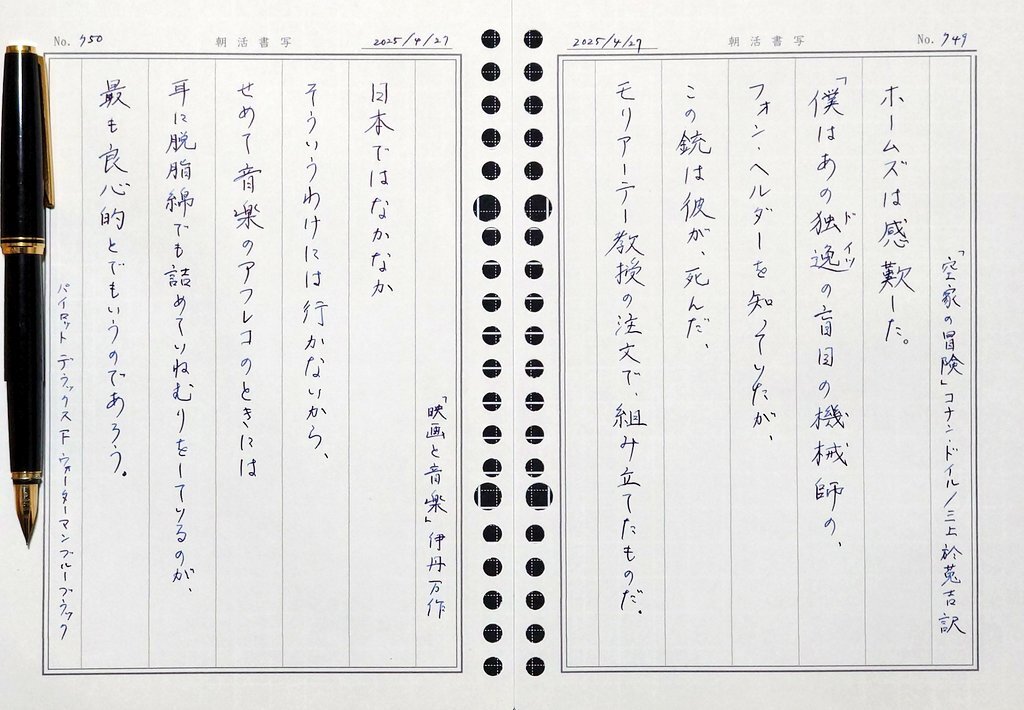 No. 749
朝活書写
2025/4/27
「空家の冒険」コナン・ドイル/三上於菟吉訳
ホームズは感歎した。
「僕はあの独逸の盲目の機械師の、
ドイツ
フォン・ヘルダーを知っていたが、
この銃は彼が、死んだ、
モリアーテー教授の注文で、組み立てたものだ。
No. 750
朝活書写
2025/4/27
「映画と音楽」伊丹万作
日本ではなかなか
そういうわけには行かないから、
せめて音楽のアフレコのときには
耳に脱脂綿でも詰めていねむりをしているのが、
最も良心的とでもいうのであろう。
パイロット デラックス F ウォーターマンブルーブラック